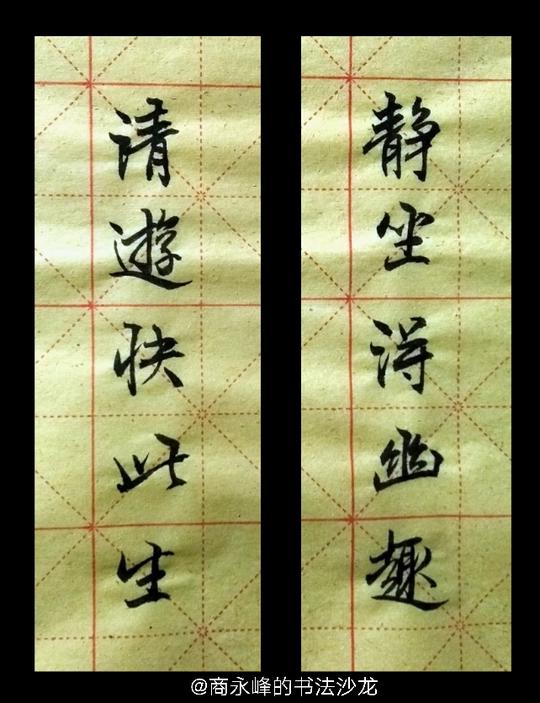 静坐得幽趣
请遊快此生
@商永峰的书法沙龙